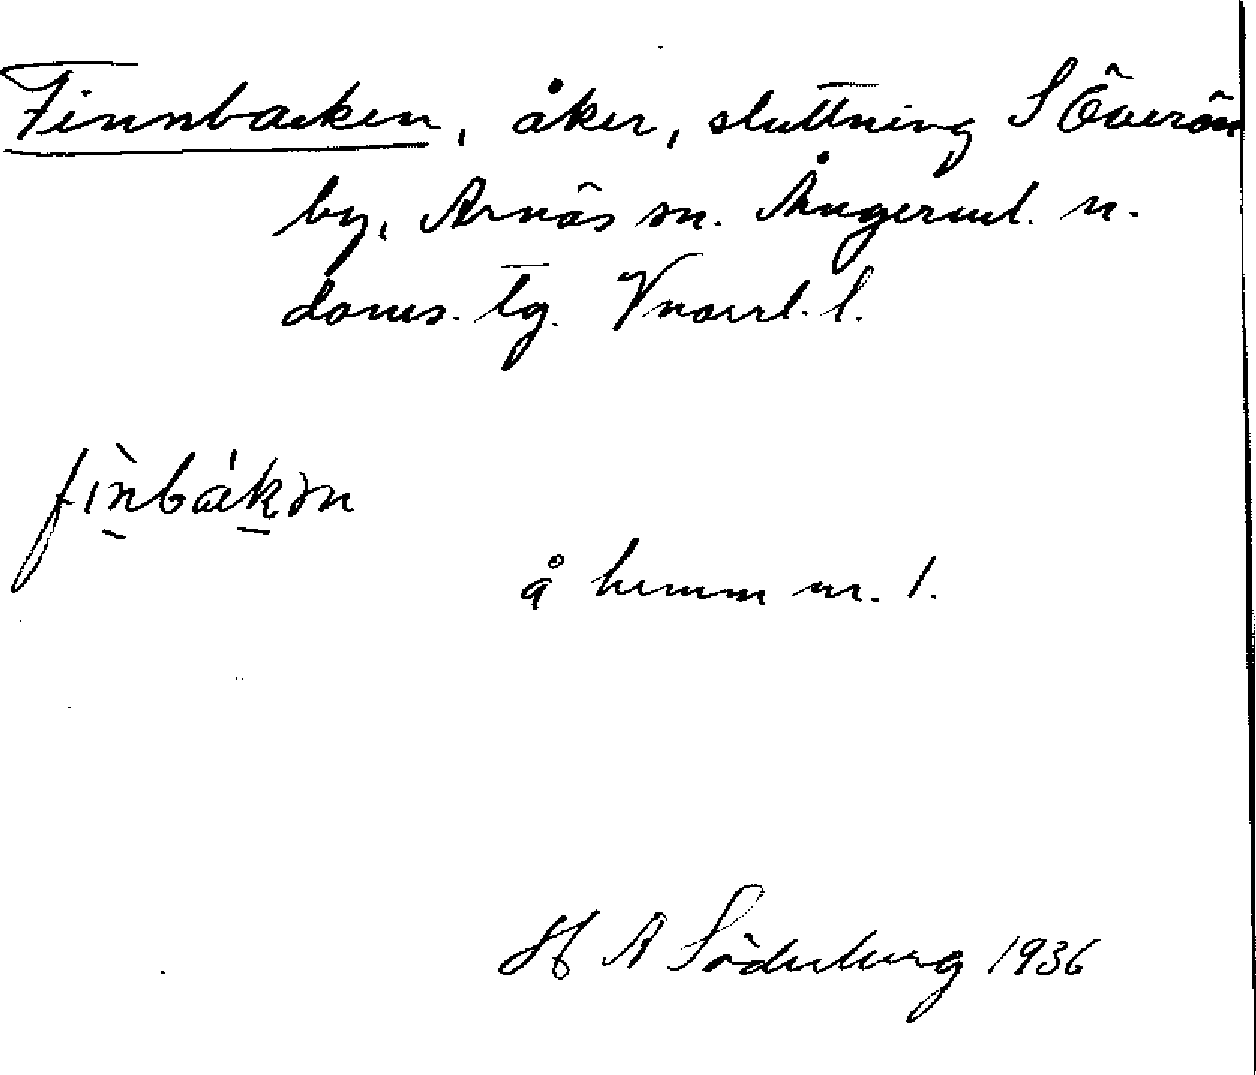 Finnbacken, åker, sluttning S Överön
by, Arnäs sn. Ångerml. n.
doms. tg. Vnorrl. l.
fìnbák
å hemm nr. 1.
H A Söderberg 1936